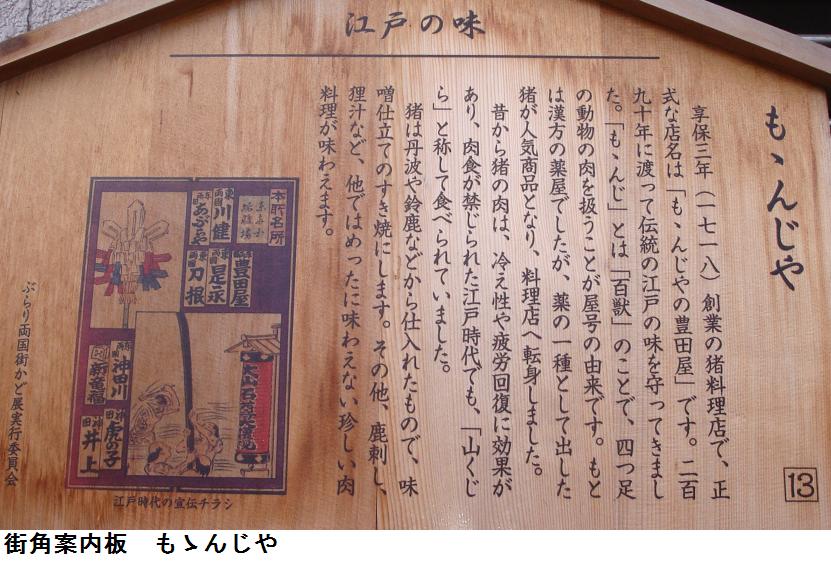 江戸の味
もゝんじや
享保三年（一七一八）創業の猪料理店で、正
式な店名は「もゝんじやの豊田屋」です。二百
九十年に渡って伝統の江戸の味を守ってきまし
た。「もゝんじ」とは「百獣」のことで、四つ足
の動物の肉を扱うことが屋号の由来です。もと
は漢方の薬屋でしたが、薬の一種として出した
猪が人気商品となり、料理店へ転身しました。
昔から猪の肉は、冷え性や疲労回復に効果が
あり、肉食が禁じられた江戸時代でも、「山くじ
ら」と称して食べられていました。
猪は丹波や鈴鹿などから仕入れたもので、味
噌仕立てのすき焼にします。その他、鹿刺し、
狸汁など、他ではめったに味わえない珍しい肉
料理が味わえます。
13
本所名所
東両国
川健
両国
豊田屋
昆永
刀根
大山石尊
両国
神田川
新竜福
神田
虎の子
神田
井上
江戸時代の宣伝チラシ
ぶらり両国街かど展実行委員会
街角案内板　もゝんじや